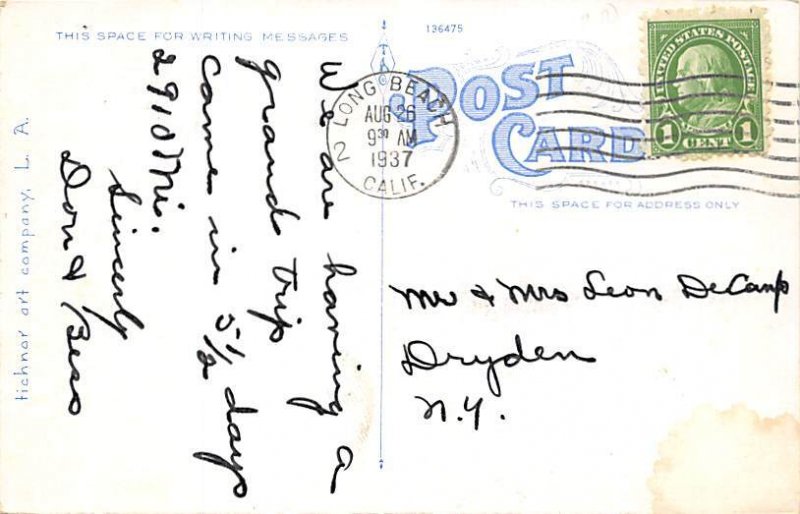 THIS SPACE FOR WRITING MESSAGES
136475
We are having a
grand trip
came in 5 1/2 days
2910 Mi.
Sincerly
Don & Bess
tichnor art company, L. A.
POST
CARD
THIS SPACE FOR ADDRESS ONLY
LONG BEACH
AUG 26
9 30 AM
1937
CALIF.
2
UNITED STATES POSTAGE
1 CENT 1
Mr & Mrs Leon DeCamp
Dryden
N.Y.